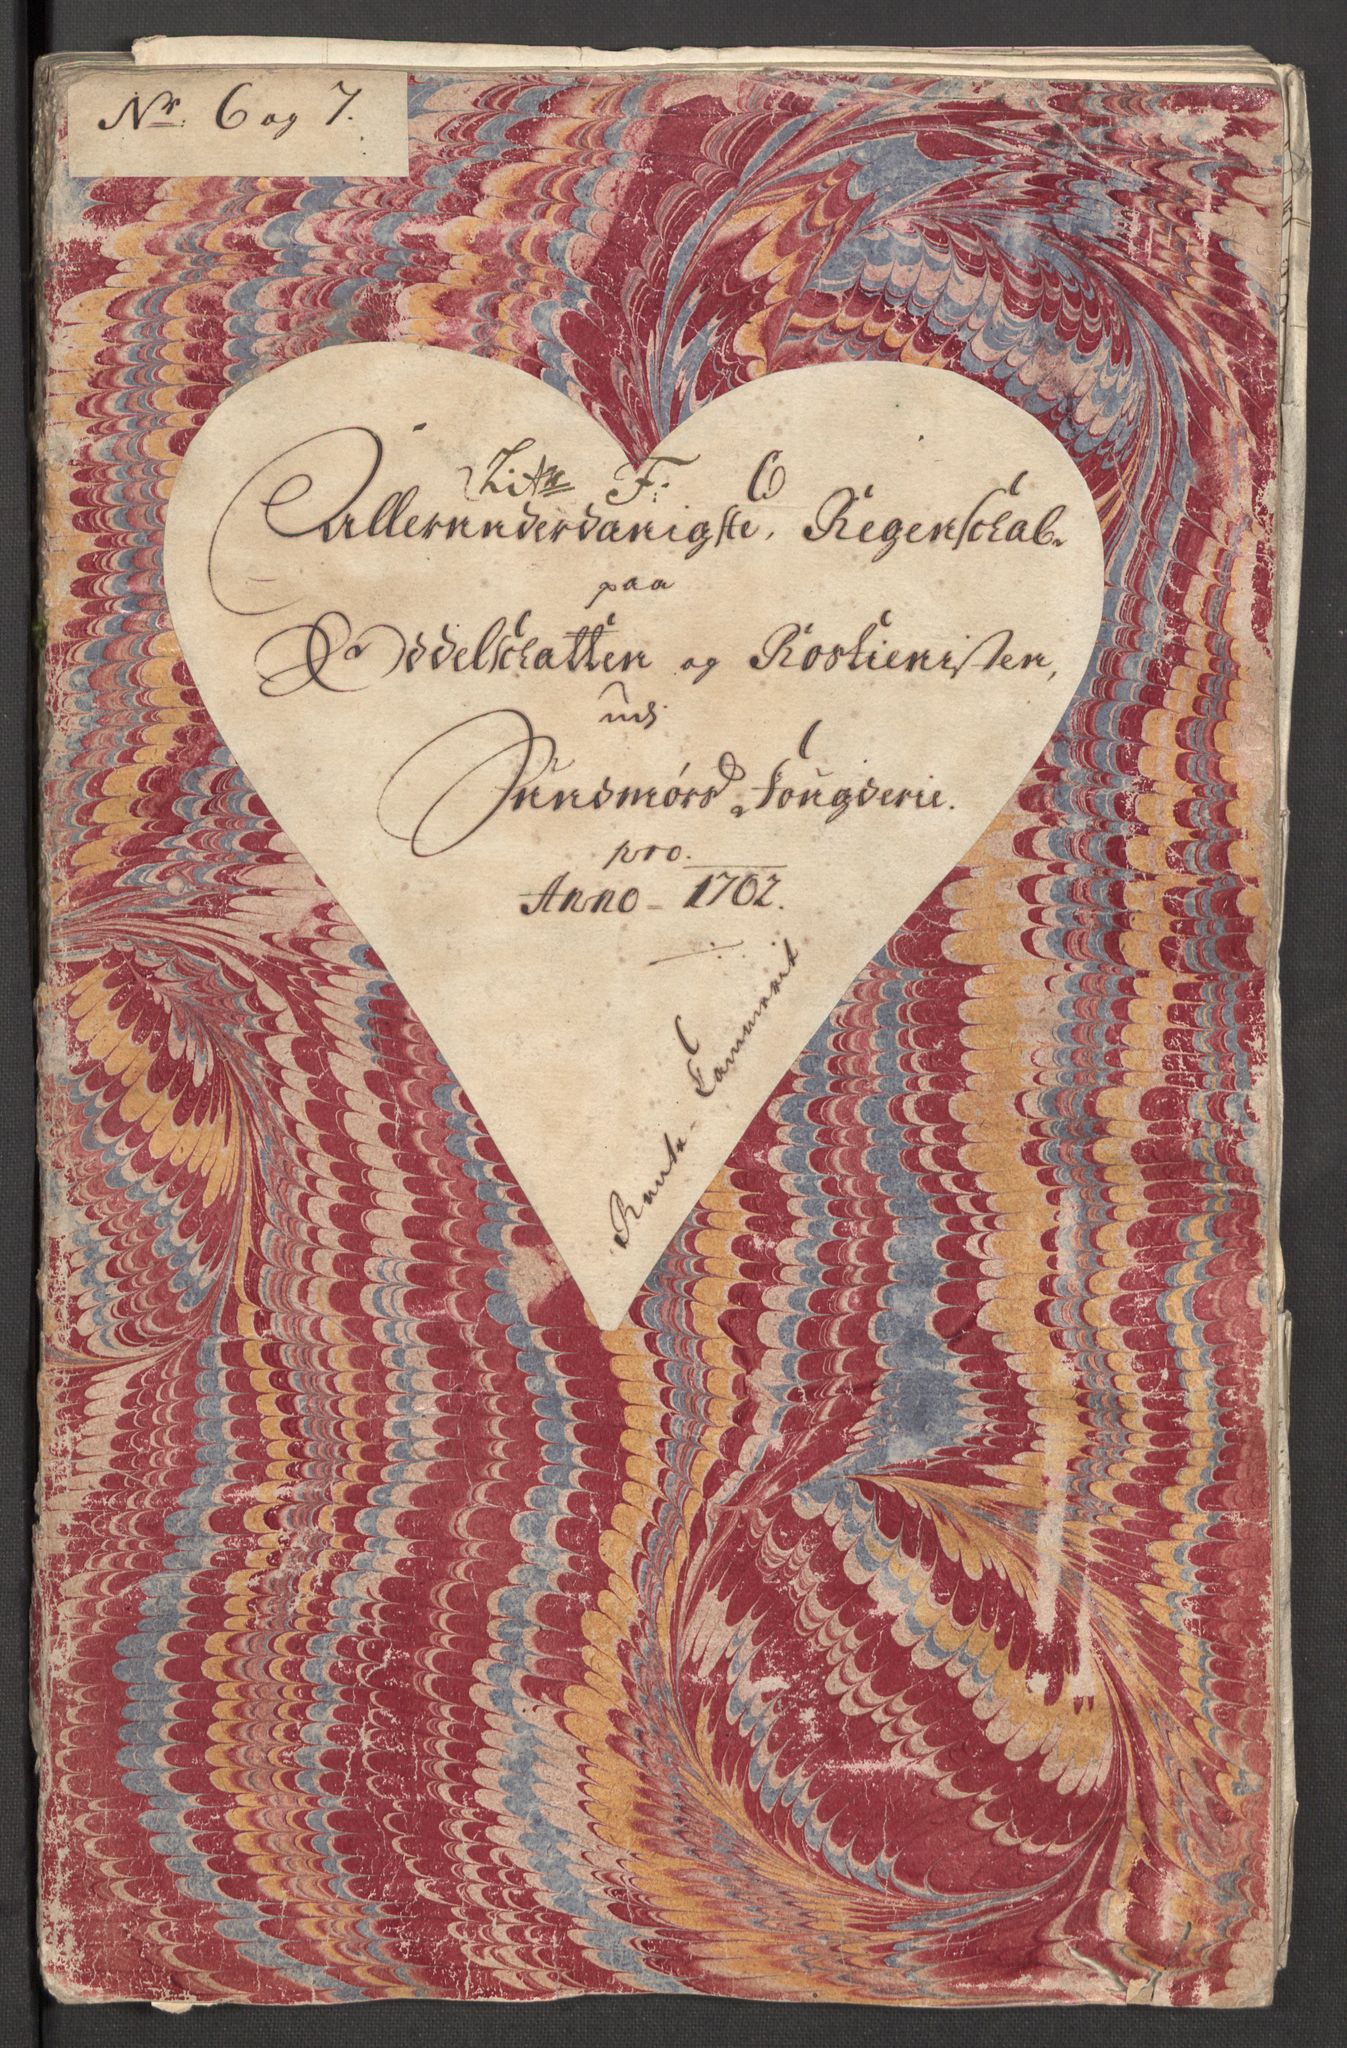 Nr. 6 og 7.
Litr F.
Allerunderdanigste Regenschab
paa
Oddelschatten og Rostienisten,
udj
Sundmørs Fougderie.
pro.
Anno - 1702.
Rente Cammerit